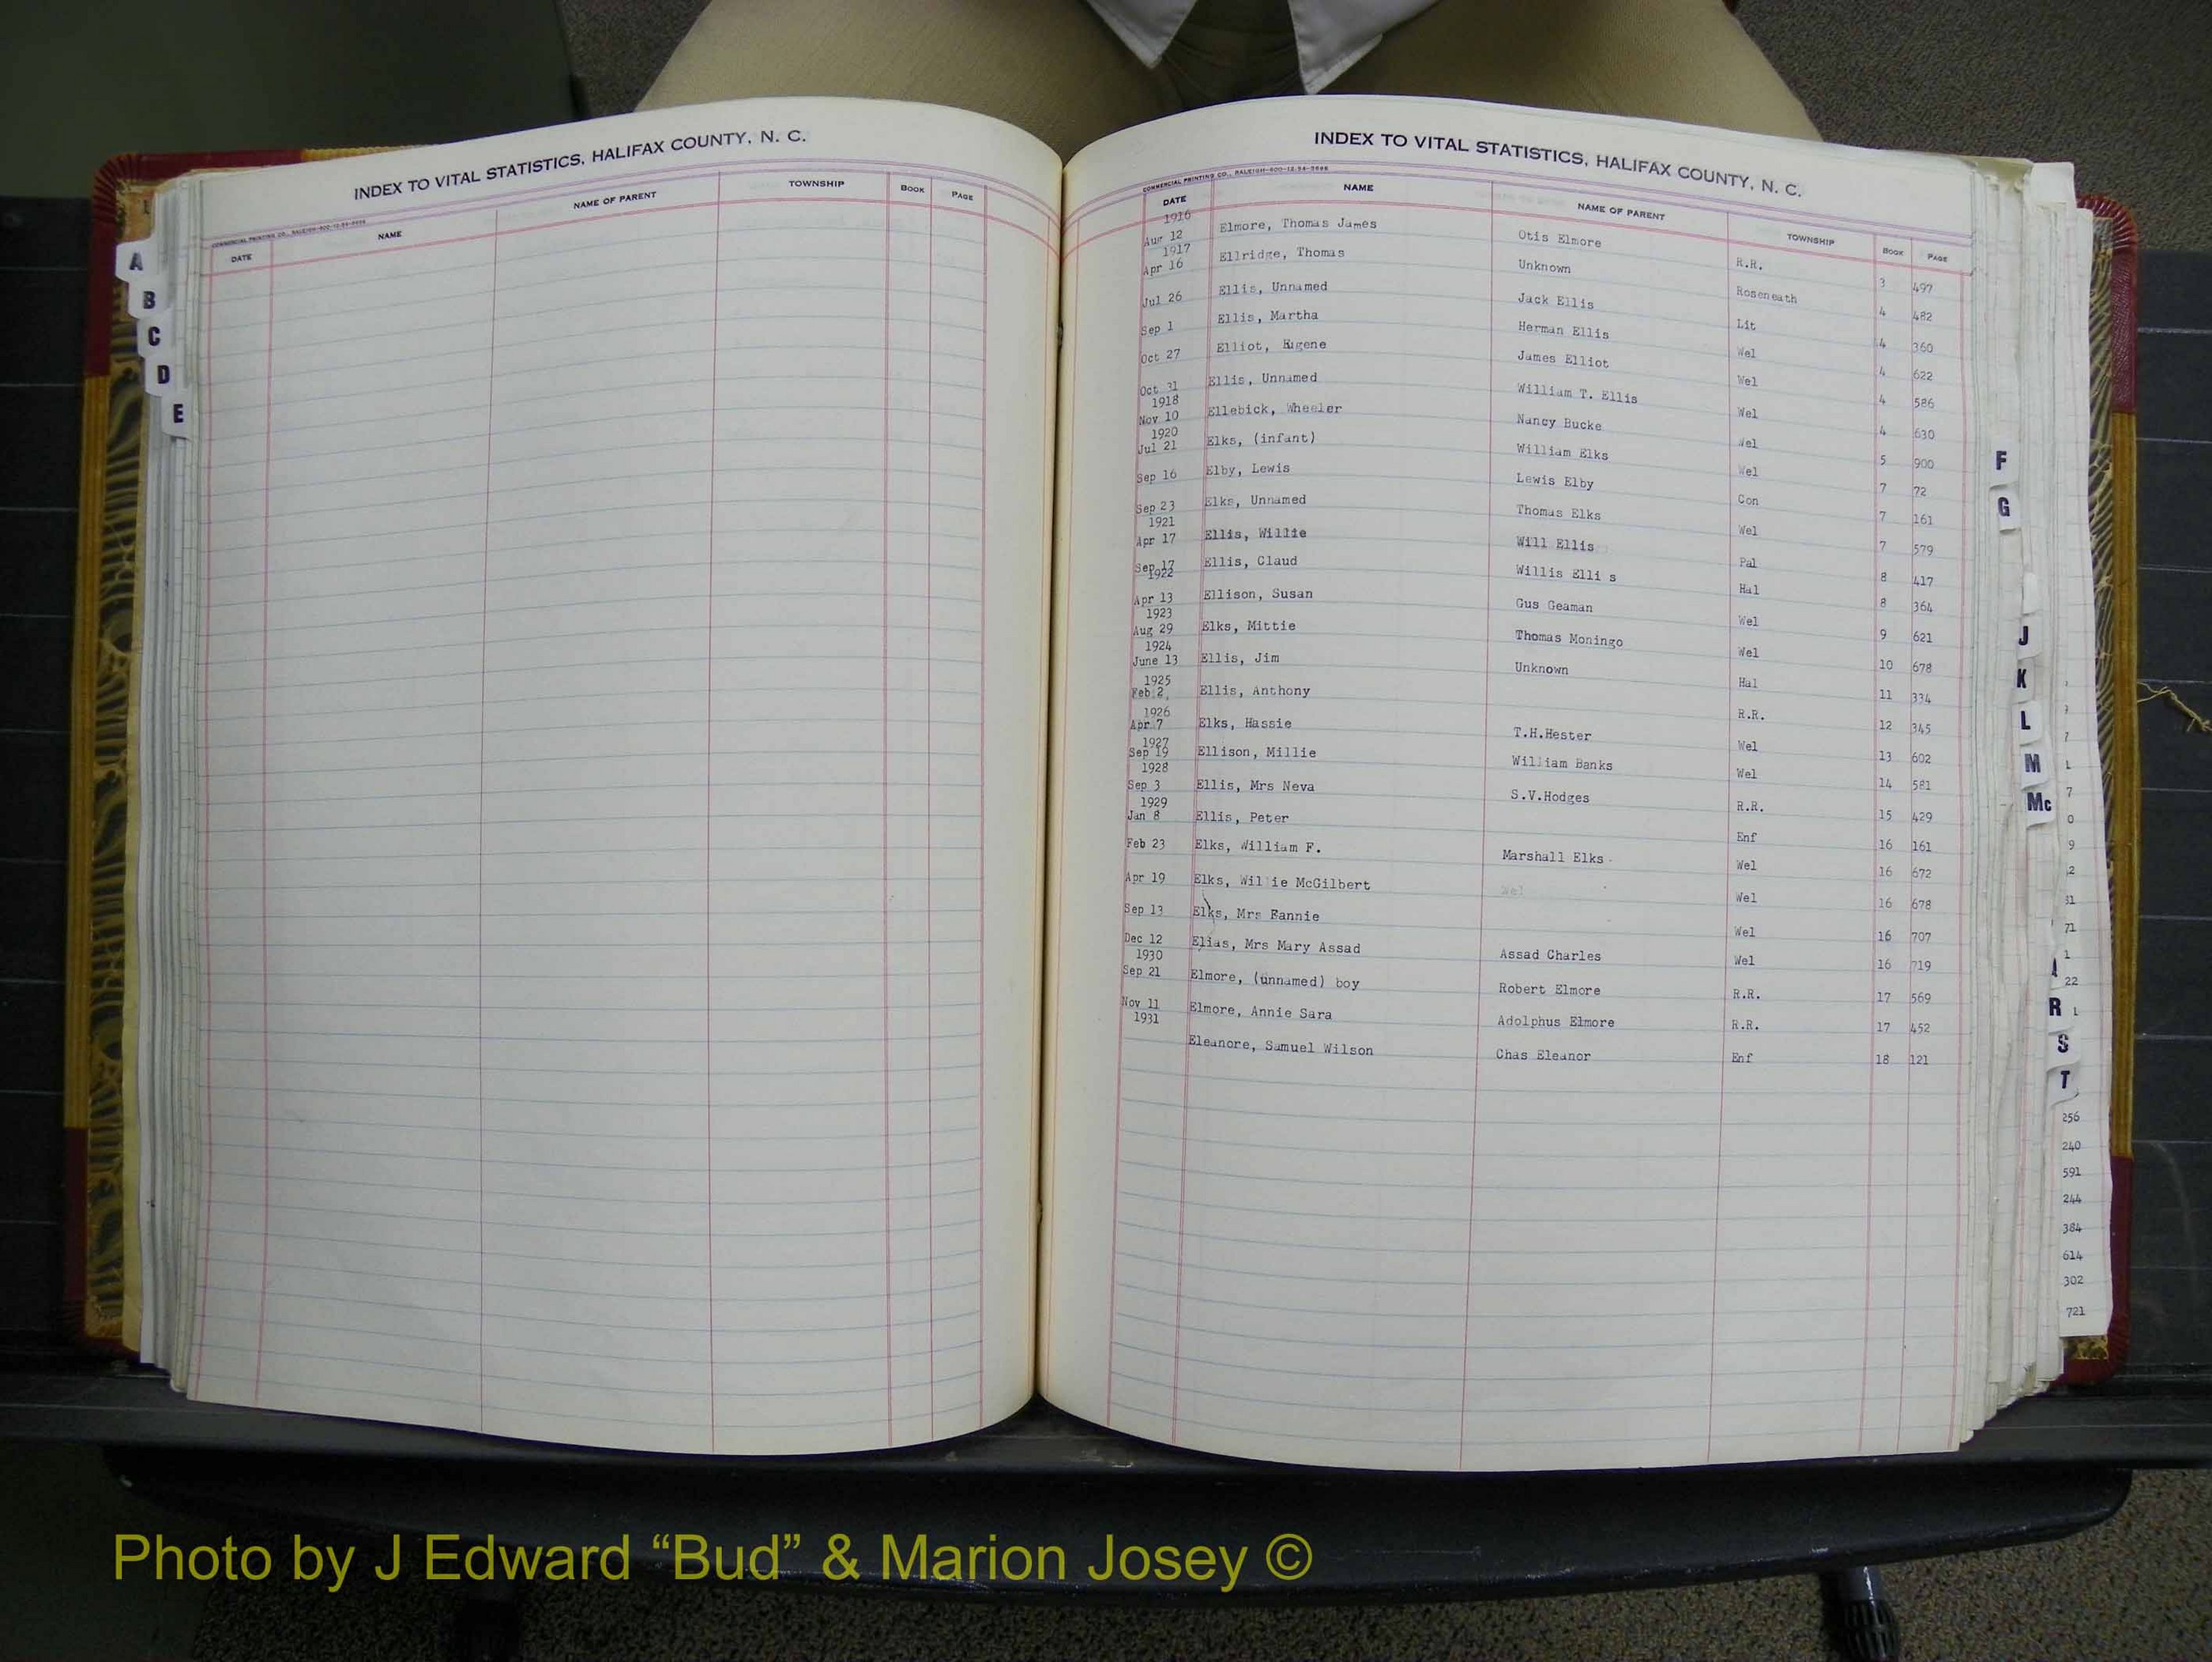 INDEX TO VITAL STATISTICS, HALIFAX COUNTY, N. C.
COMMERCIAL PRINTING CO., RALEIGH
DATE NAME NAME OF PARENT TOWNSHIP BOOK PAGE
A
B
C
D
E
INDEX TO VITAL STATISTICS, HALIFAX COUNTY, N. C.
COMMERCIAL PRINTING CO., RALEIGH
DATE NAME NAME OF PARENT TOWNSHIP BOOK PAGE
1916
Aug 12 Elmore, Thomas James Otis Elmore R.R. 3 497
1917
Apr 16 Ellridge, Thomas Unknown Roseneath 4 482
Jul 26 Ellis, Unnamed Jack Ellis Lit 4 360
Sep 1 Ellis, Martha Herman Ellis Wel 4 622
Oct 27 Elliot, Eugene James Elliot Wel 4 586
Oct 31 Ellis, Unnamed William T. Ellis Wel 4 630
1918
Nov 10 Ellebick, Wheeler Nancy Bucke Wel 5 900
1920
Jul 21 Elks, (infant) William Elks Wel 7 72
Sep 16 Elby, Lewis Lewis Elby Con 7 161
Sep 23 Elks, Unnamed Thomas Elks Wel 7 579
1921
Apr 17 Ellis, Willie Will Ellis Pal 8 417
Sep 17 Ellis, Claud Willis Elli s Hal 8 364
1922
Apr 13 Ellison, Susan Gus Geaman Wel 9 621
1923
Aug 29 Elks, Mittie Thomas Moningo Wel 10 678
1924
June 13 Ellis, Jim Unknown Hal 11 334
1925
Feb 2, Ellis, Anthony R.R. 12 345
1926
Apr 7 Elks, Hassie T.H.Hester Wel 13 602
1927
Sep 19 Ellison, Millie William Banks Wel 14 581
1928
Sep 3 Ellis, Mrs Neva S.V.Hodges R.R. 15 429
1929
Jan 8 Ellis, Peter Enf 16 161
Feb 23 Elks, William F. Marshall Elks Wel 16 672
Apr 19 Elks, Wil ie McGilbert Wel 16 678
Sep 13 Elks, Mrs Fannie Wel 16 707
Dec 12 Elias, Mrs Mary Assad Assad Charles Wel 16 719
1930
Sep 21 Elmore, (unnamed) boy Robert Elmore R.R. 17 569
Nov 11 Elmore, Annie Sara Adolphus Elmore R.R. 17 452
1931
Eleanore, Samuel Wilson Chas Eleanor Enf 18 121
F
G
J
K
L
M
Mc
R
S
T
22
256
240
591
244
384
614
302
721
Photo by J Edward “Bud” & Marion Josey ©